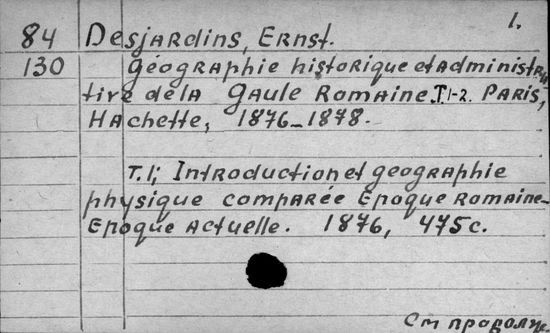 1.
84 Desjardins, Ernst.
130 géographie historique et administra
tive de la Gaule Romaine. T. 1-2. Paris,
Hachette, 1876-1878.
T. 1; Introduction et geographie
physique comparée Epoque romaine-
Epoque actuelle. 1876, 475 c.
См продолж